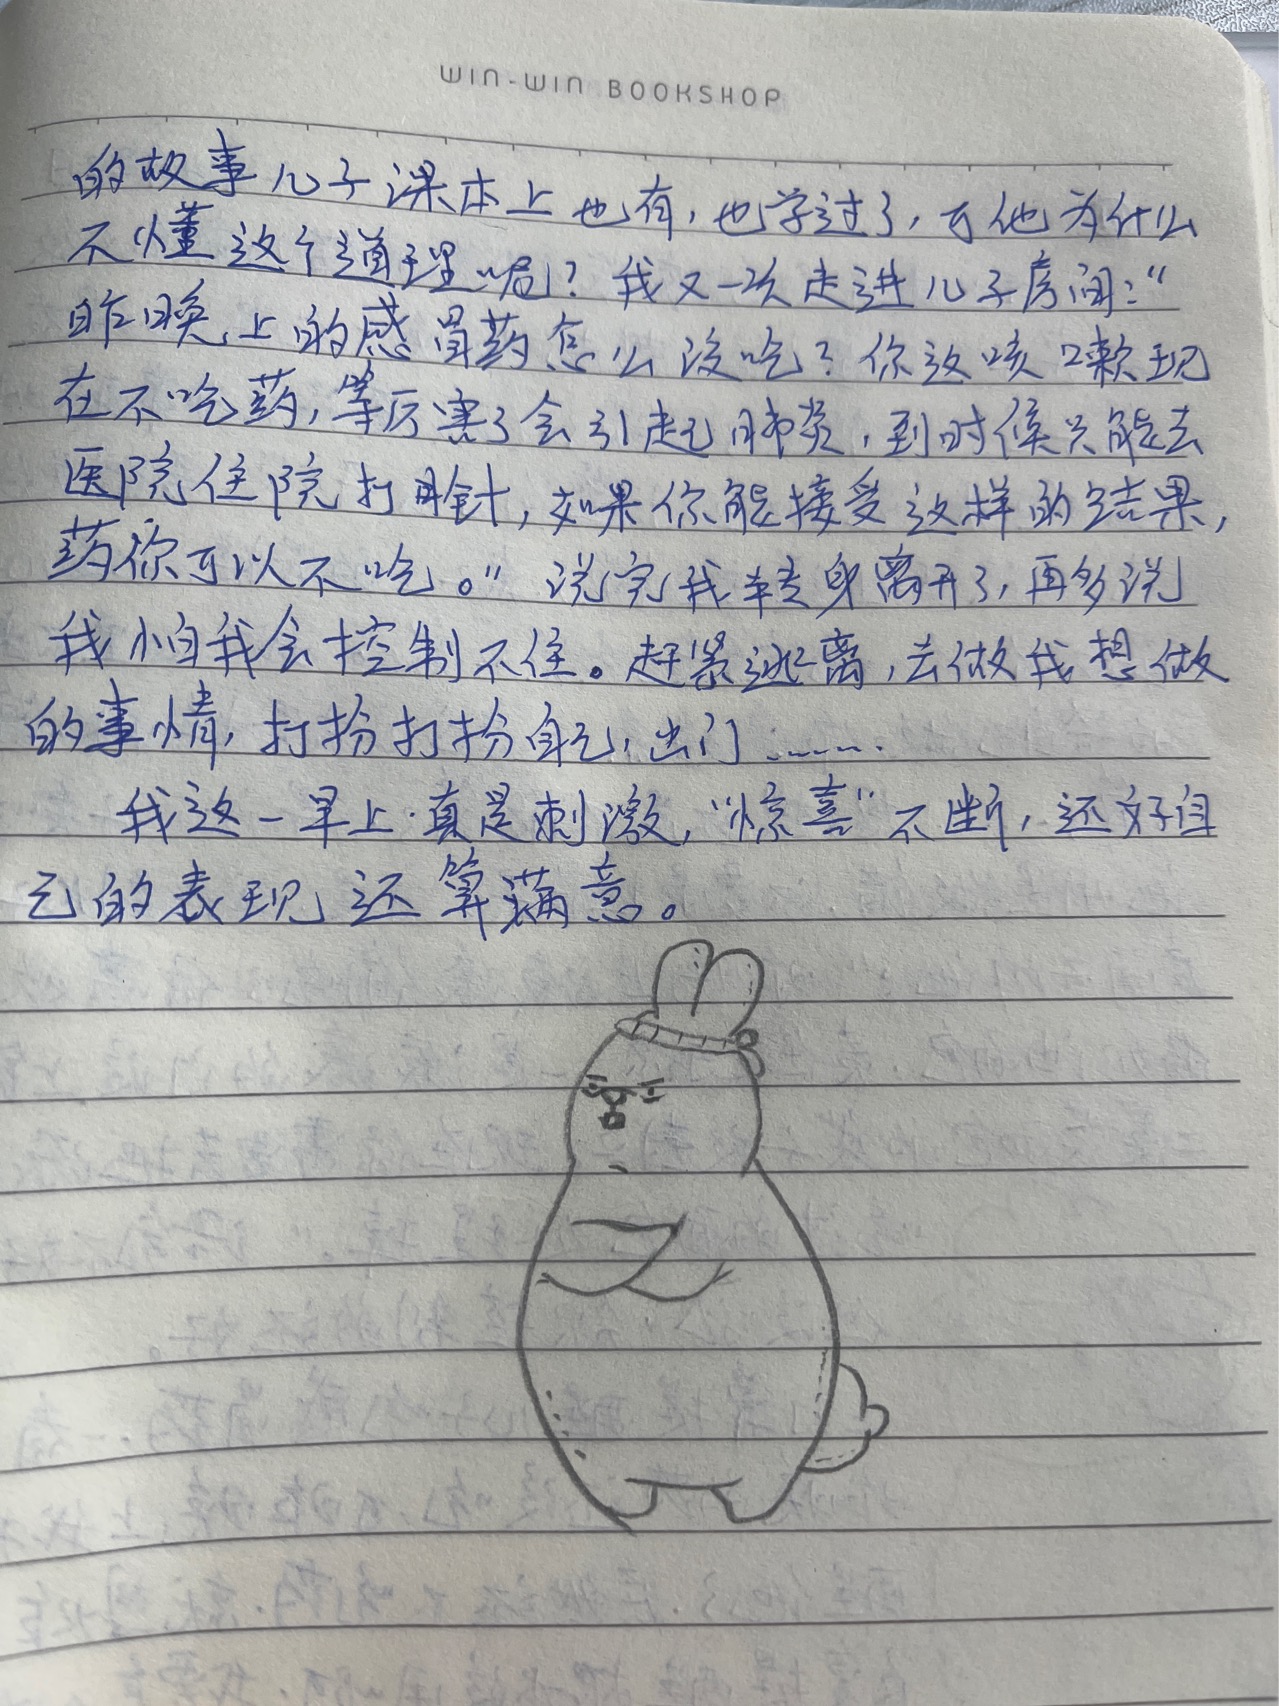 WIN-WIN BOOKSHOP
的故事儿子课本上也有，也学过了，可他为什么
不懂这个道理呢？我又一次走进儿子房间：“
昨晚上的感冒药怎么没吃？你这咳嗽现
在不吃药，等厉害了会引起肺炎，到时候只能去
医院住院打针，如果你能接受这样的结果，
药你可以不吃。”说完我转身离开了，再多说
我怕我会控制不住。赶紧逃离，去做我想做
的事情，打扮打扮自己，出门……
我这一早上真是刺激，“惊喜”不断，还好自
己的表现还算满意。